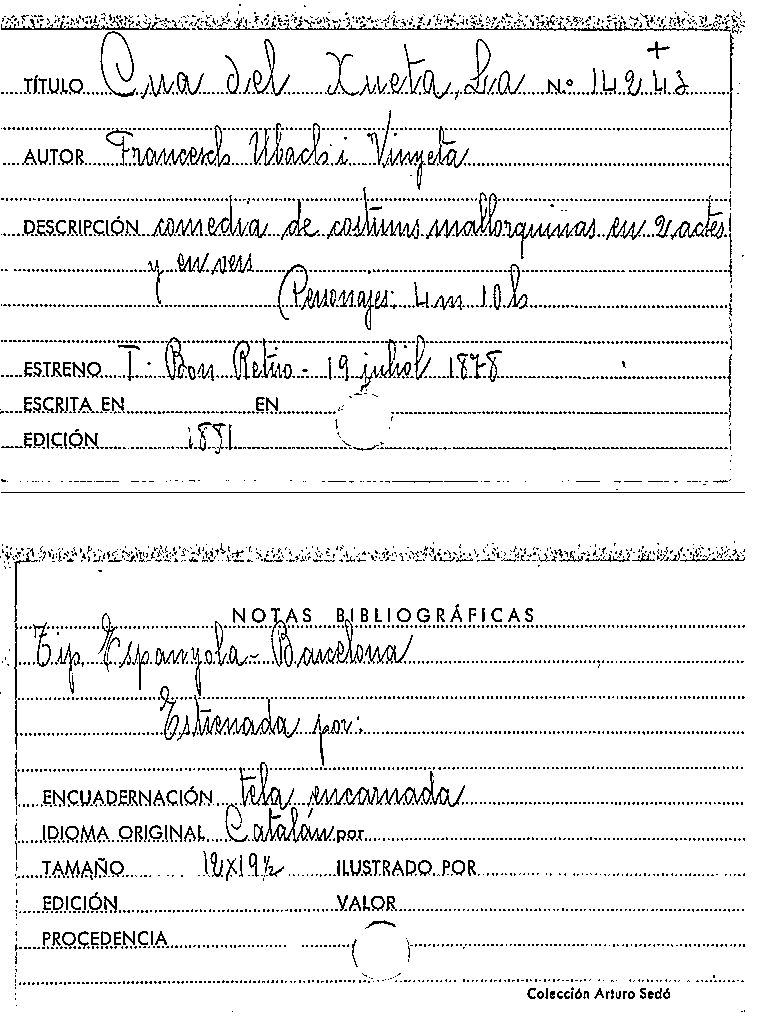 TÍTULO Cua del Xueta, La N.º 14243
+
AUTOR Francesch Ubach i Vinyeta
DESCRIPCIÓN comedia de costums mallorquinas en 2 actes
y en vers
(Personajes: 4m 10h
ESTRENO T. Bon Retiro - 19 juliol 1878
ESCRITA EN EN
EDICIÓN 1881
NOTAS BIBLIOGRÁFICAS
Tip. Espanyola - Barcelona
Estrenada por:
ENCUADERNACIÓN tela encarnada
IDIOMA ORIGINAL Catalán por
TAMAÑO 12x19½ ILUSTRADO POR
EDICIÓN VALOR
PROCEDENCIA
Colección Arturo Sedó